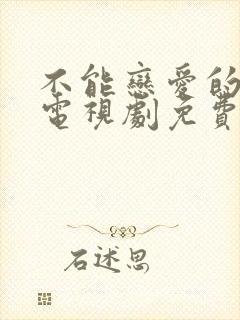 不能戀愛的
電視劇免費
石述思